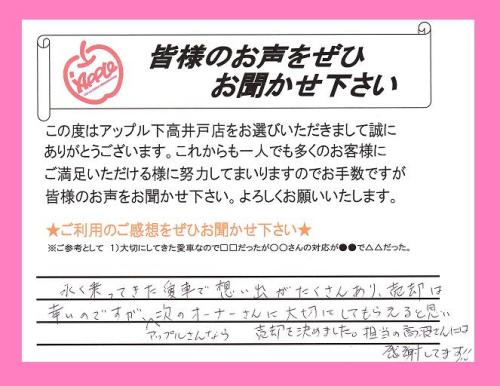 Apple
皆様のお声をぜひ
お聞かせ下さい
この度はアップル下高井戸店をお選びいただきまして誠に
ありがとうございます。これからも一人でも多くのお客様に
ご満足いただける様に努力してまいりますのでお手数ですが
皆様のお声をお聞かせ下さい。よろしくお願いいたします。
★ご利用のご感想をぜひお聞かせ下さい★
※ご参考として 1)大切にしてきた愛車なので□□だったが○○さんの対応が●●で△△だった。
永く乗ってきた愛車で想い出がたくさんあり、売却は
のですが、次のオーナーさんに大切にしてもらえると思い
アップルさんなら
売却を決めました。担当の高沢さんには
感謝してます!!